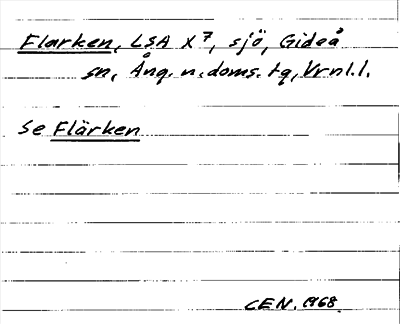 Flarken, LSA X7, sjö, Gideå
sn, Ång. n. doms. tg, Vrnl.l.
Se Flärken
CEN. 1968.